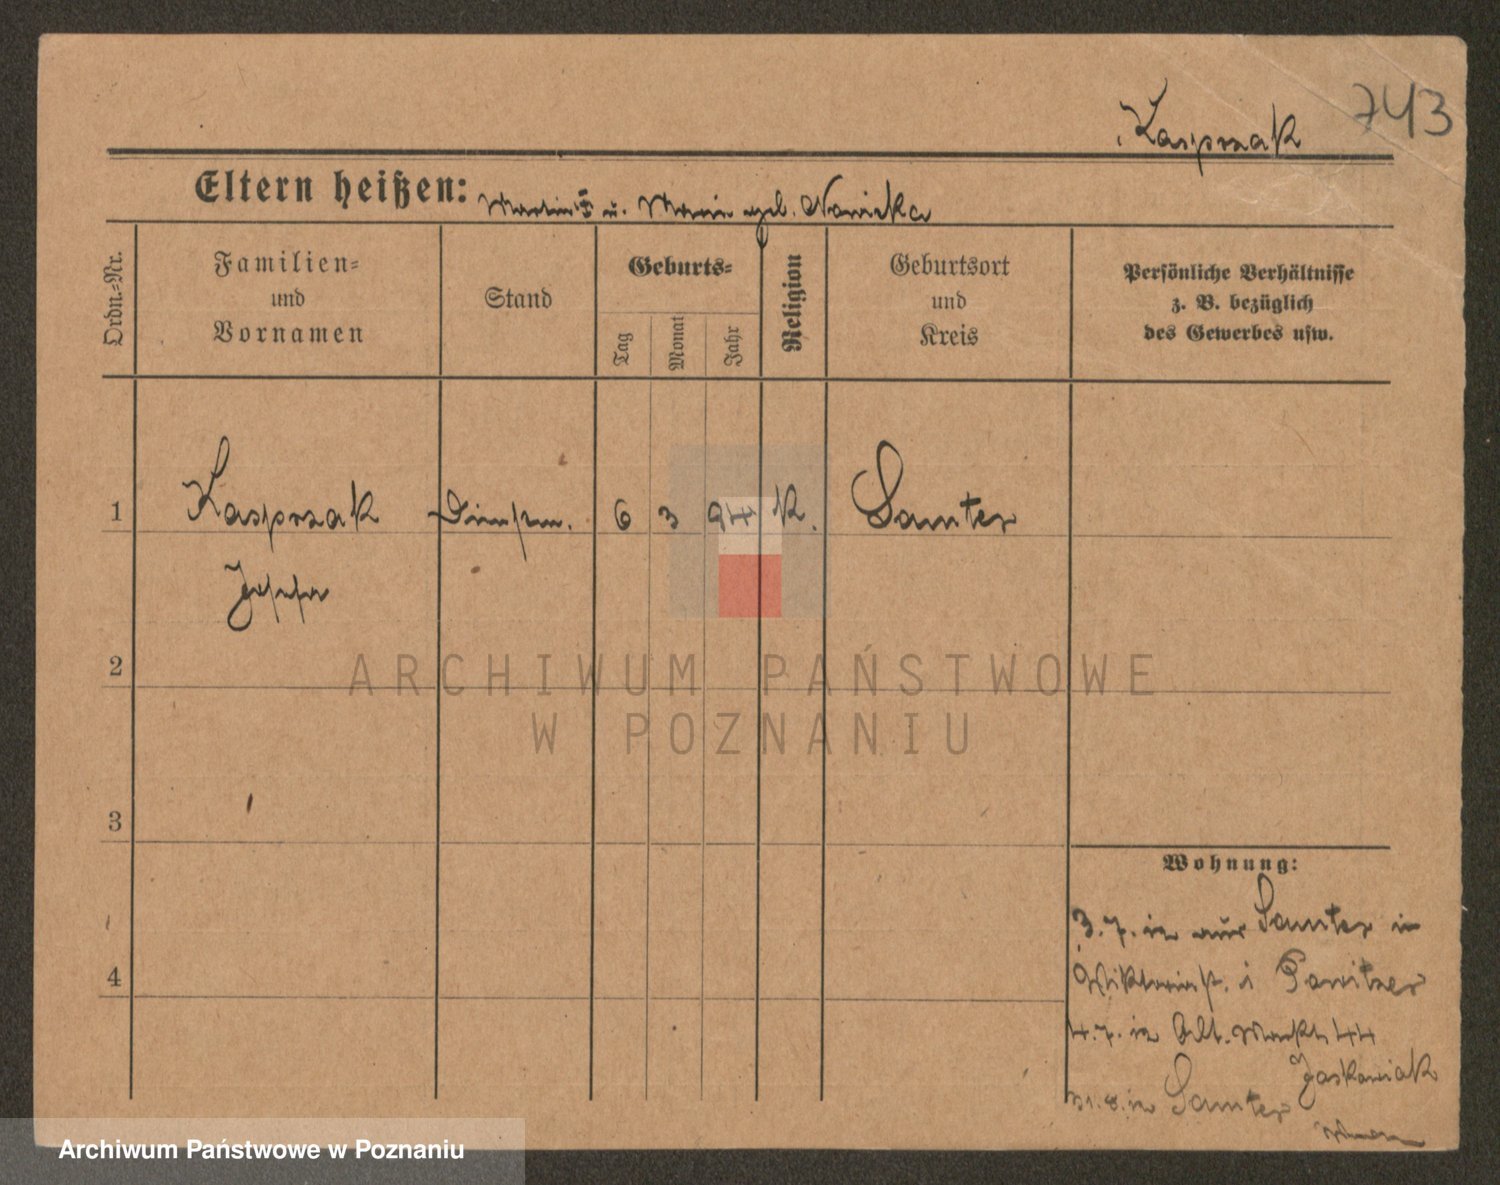 Kasprzak 743
Eltern heißen: Martin u. Marie geb. Nawicka
Ordn.-Nr.
Familien-
und
Vornamen
Stand
Geburts-
Tag
Monat
Jahr
Religion
Geburtsort
und
Kreis
Persönliche Verhältnisse
z. B. bezüglich
des Gewerbes usw.
1 Kasprzak 6 3 94 K. Samter
2
3
4
Wohnung:
3.7. aus Samter in
i Pawitzer
4.7. Alt. Markt 44
Jaskowiak
31.8. in Samter
ARCHIWUM PAŃSTWOWE
W POZNANIU
Archiwum Państwowe w Poznaniu